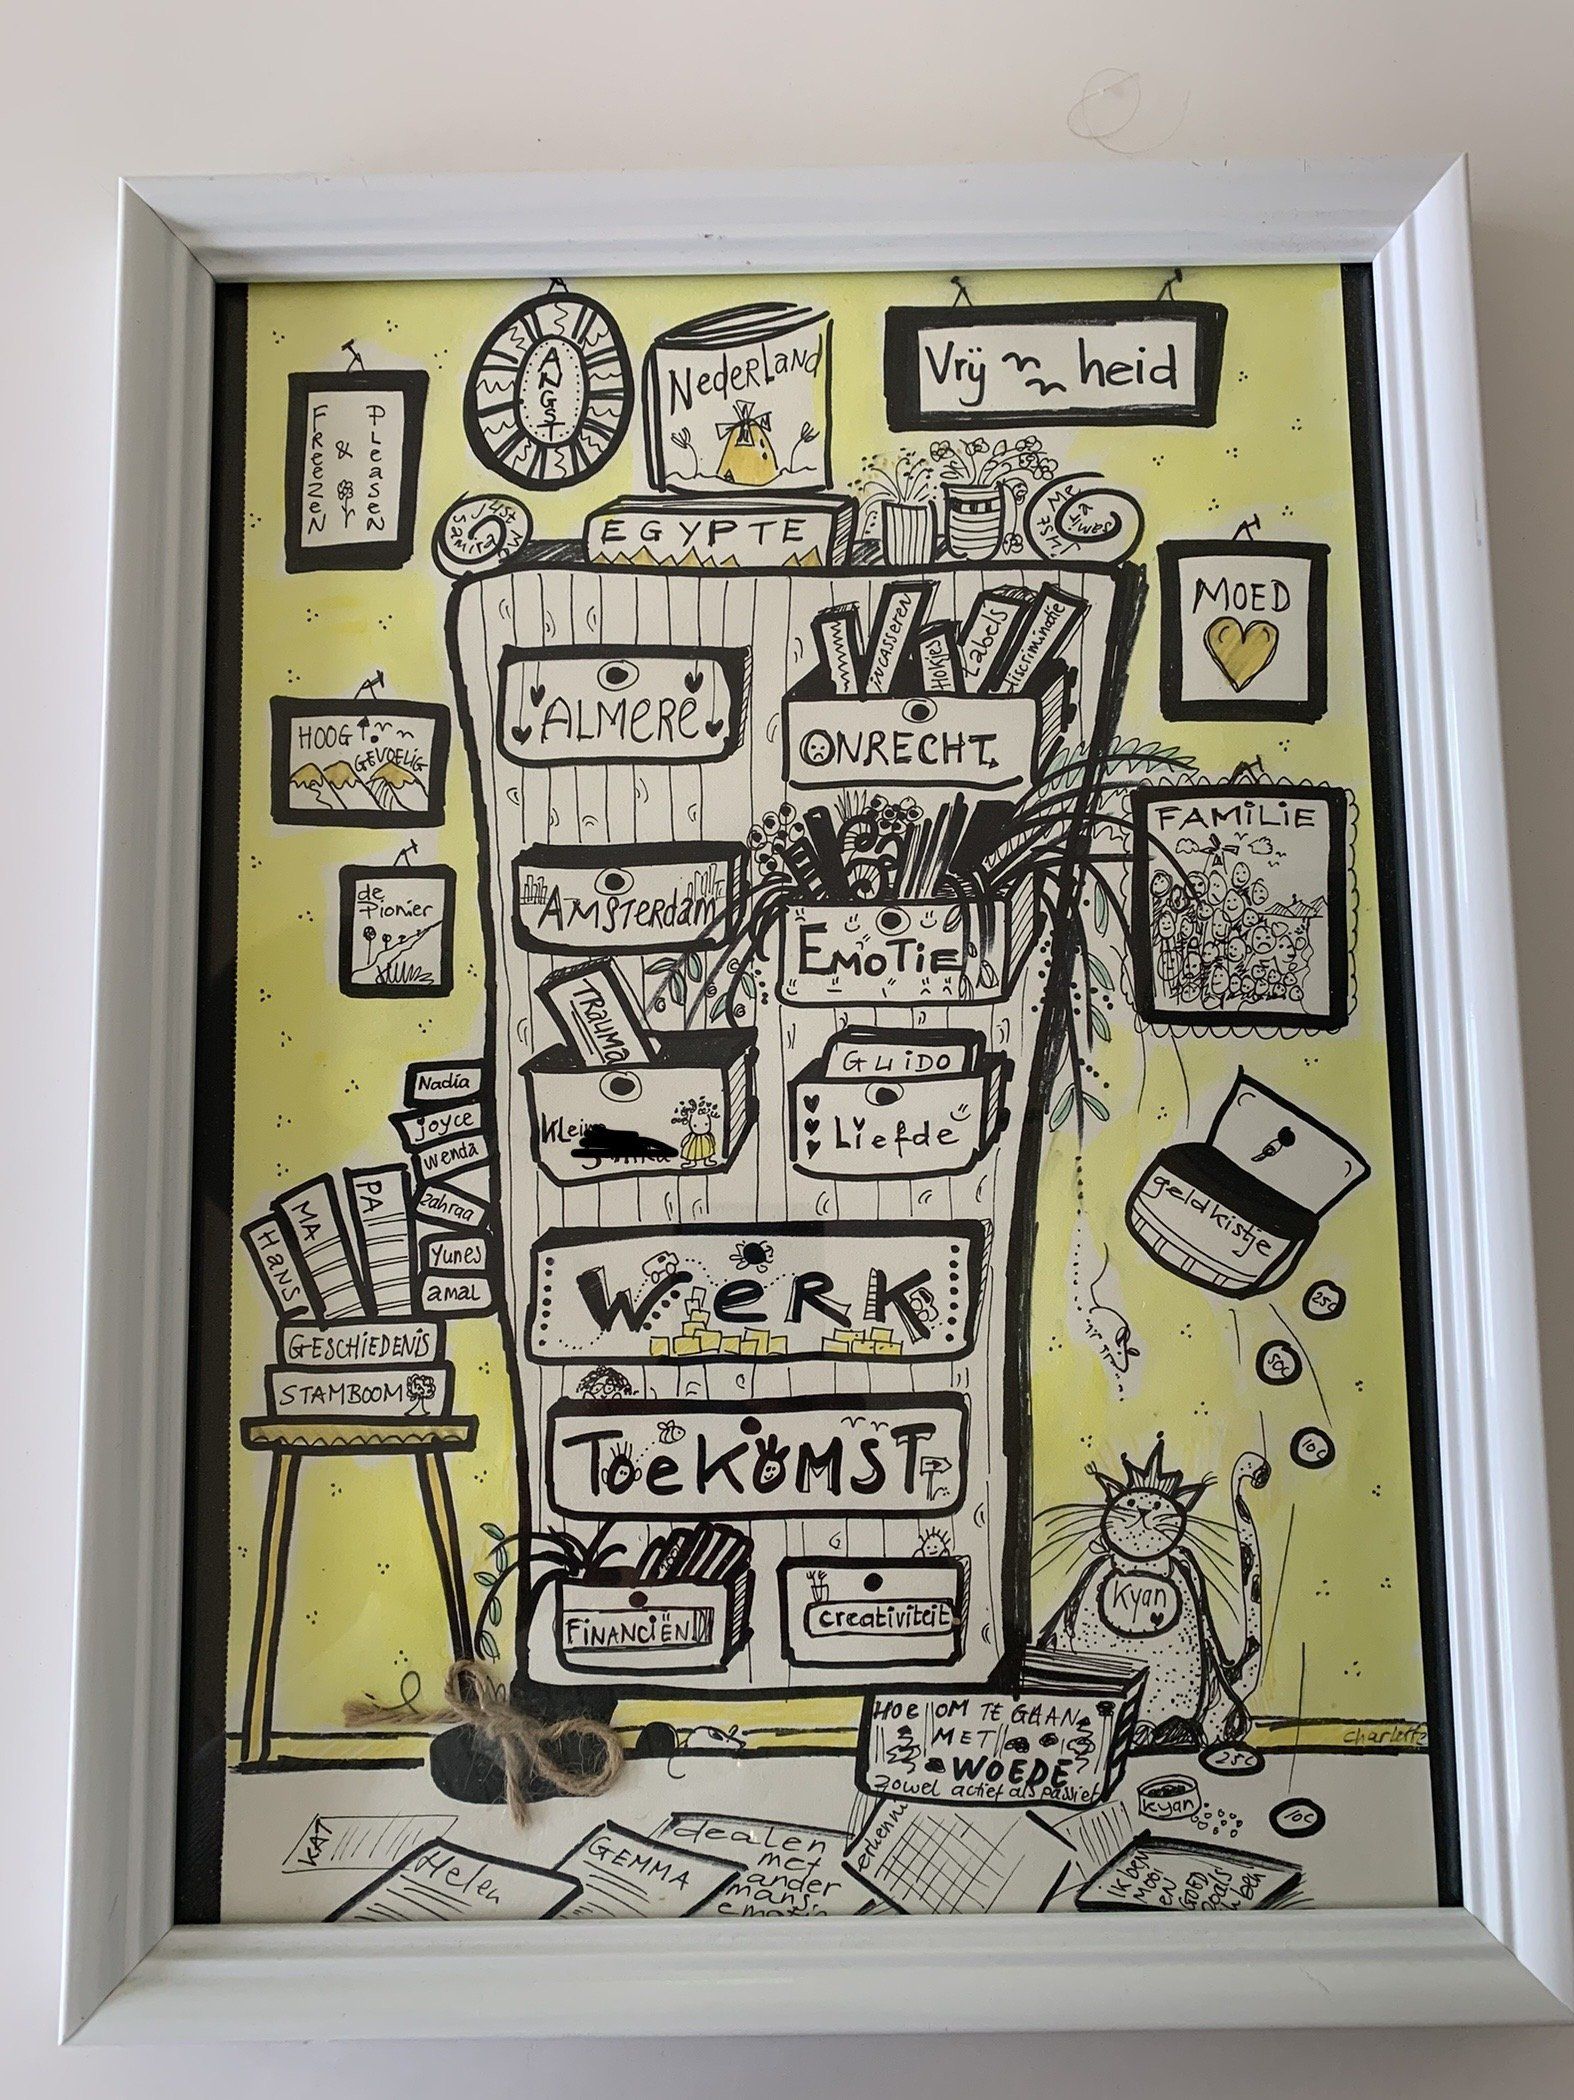 ANGST
NEDERLAND
Vrij heid
FREEZEN
&
PLEASEN
Just Me
Samira
EGYPTE
Just Me
Samira
MOED
INCASSEREN
Hokjes
Labels
discriminatie
ALMERE
ONRECHT
HOOG
GEVOELIG
FAMILIE
de
Pionier
AMSTERdam
EMOTIE
TRAUMA
GUIDO
Nadia
KLein
Liefde
joyce
wenda
zahraa
Yunes
amal
HANS
MA
PA
geldkistje
WERK
25c
5c
10c
GESCHIEDENIS
STAMBOOM
TOEKOMST
Kyan
FINANCIËN
creativiteit
HOE OM TE GAAN
MET
WOEDE
zowel actief als passief
charlertz
25c
kyan
10c
KAT
Helen
GEMMA
dealen
met
ander
mans
erkenni
ik ben
mooi
en
GOED
zoals
ik ben